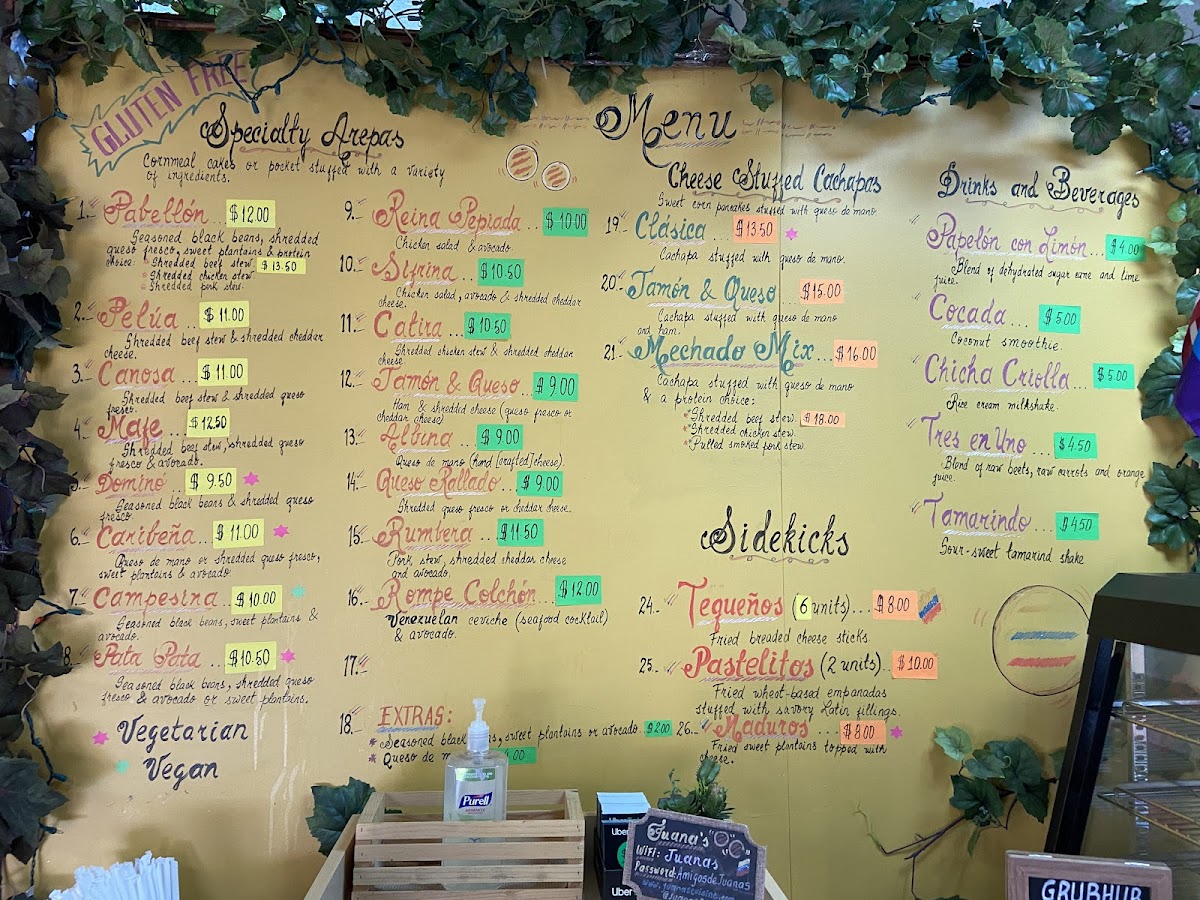 GLUTEN FREE
Specialty Arepas
Cornmeal cakes or pocket stuffed with a variety
of ingredients.
1.- Pabellón $12.00
Seasoned black beans, shredded
queso fresco, sweet plantains & protein
choice: *Shredded beef stew $13.50
*Shredded chicken stew
*Shredded pork stew.
2.- Pelúa... $11.00
Shredded beef stew & shredded cheddar
cheese.
3.- Canosa ... $11.00
Shredded beef stew & shredded queso
fresco.
4.- Mafe ... $12.50
Shredded beef stew, shredded queso
fresco & avocado.
5.- Dominó ... $9.50
Seasoned black beans & shredded queso
fresco
6.- Caribeña... $11.00
Queso de mano or shredded queso fresco,
sweet plantains & avocado.
7.- Campesina... $10.00
Seasoned black beans, sweet plantains &
avocado.
8.- Pata Pata ... $10.50
Seasoned black beans, shredded queso
fresco & avocado or sweet plantains.
Vegetarian
Vegan
9.- Reina Pepiada ... $10.00
Chicken salad & avocado.
10.- Sifrina ... $10.50
Chicken salad, avocado & shredded cheddar
cheese.
11.- Catira ... $10.50
Shredded chicken stew & shredded cheddar
cheese
12.- Jamón & Queso... $9.00
Ham & shredded cheese (queso fresco or
cheddar cheese)
13.- Albina ... $9.00
Queso de mano (hand [crafted] cheese).
14.- Queso Rallado... $9.00
Shredded queso fresco or cheddar cheese.
15.- Rumbera ... $11.50
Pork, stew, shredded cheddar cheese
and avocado.
16.- Rompe Colchón... $12.00
Venezuelan ceviche (seafood cocktail)
& avocado.
17.-
18.- EXTRAS:
*Seasoned black beans, sweet plantains or avocado. $2.00
*Queso de m .00
Menu
Cheese Stuffed Cachapas
Sweet corn pancakes stuffed with queso de mano
19.- Clásica ... $13.50
Cachapa stuffed with queso de mano.
20.- Jamón & Queso ... $15.00
Cachapa stuffed with queso de mano
and ham.
21.- Mechado Mix... $16.00
Cachapa stuffed with queso de mano
& a protein choice:
*Shredded beef stew. $18.00
*Shredded chicken stew.
*Pulled smoked pork stew.
Sidekicks
24.- Tequeños (6 units)... $8.00
Fried breaded cheese sticks.
25.- Pastelitos (2 units). $10.00
Fried wheat-based empanadas
stuffed with savory Latin fillings.
26.- Maduros ... $8.00
Fried sweet plantains topped with
cheese.
Drinks and Beverages
Papelón con Limón... $4.00
Blend of dehydrated sugar cane and lime
juice.
Cocada ... $5.00
Coconut smoothie.
Chicha Criolla... $5.00
Rice cream milkshake.
Tres en Uno ... $4.50
Blend of raw beets, raw carrots and orange
juice.
Tamarindo ... $4.50
Sour-sweet tamarind shake
PURELL
Uber
Uber
Juana's
WiFi: Juanas
Password: AmigosdeJuanas
GRUBHUB